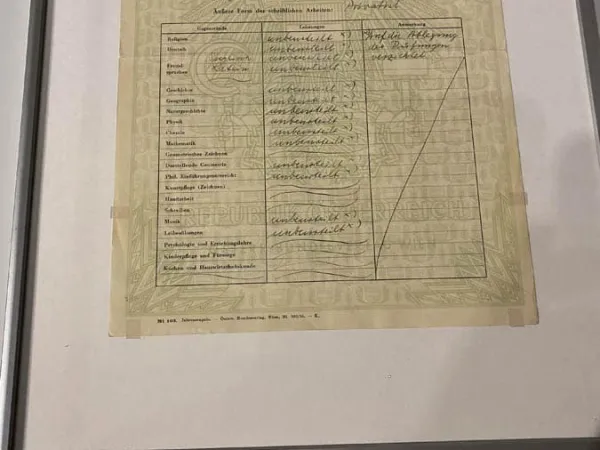 Äußere Form der schriftlichen Arbeiten: Privatist
Gegenstände Leistungen Anmerkung
Religion unbeurteilt x) x) auf die Ablegung
Deutsch unbeurteilt x) der Prüfungen
Fremd- Englisch unbeurteilt x) verzichtet
sprachen Latein unbeurteilt x)
Geschichte unbeurteilt x)
Geographie unbeurteilt x)
Naturgeschichte unbeurteilt x)
Physik unbeurteilt x)
Chemie unbeurteilt x)
Mathematik unbeurteilt x)
Geometrisches Zeichnen
Darstellende Geometrie unbeurteilt x)
Phil. Einführungsunterricht unbeurteilt x)
Kunstpflege (Zeichnen)
Handarbeit
Schreiben
Musik unbeurteilt x)
Leibesübungen unbeurteilt x)
Psychologie und Erziehungslehre
Kinderpflege und Fürsorge
Kochen und Hauswirtschaftskunde
REPUBLIK ÖSTERREICH
Nr. 103. Jahreszeugnis. – Österr. Bundesverlag, Wien,